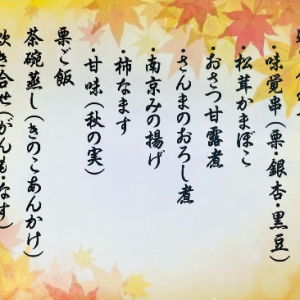 ・味覚串（栗・銀杏・黒豆）
・松茸かまぼこ
・おさつ甘露煮
・さんまのおろし煮
・南京みの揚げ
・柿なます
・甘味（秋の実）
栗ご飯
茶碗蒸し（きのこあんかけ）
炊き合せ（がんも・なす）